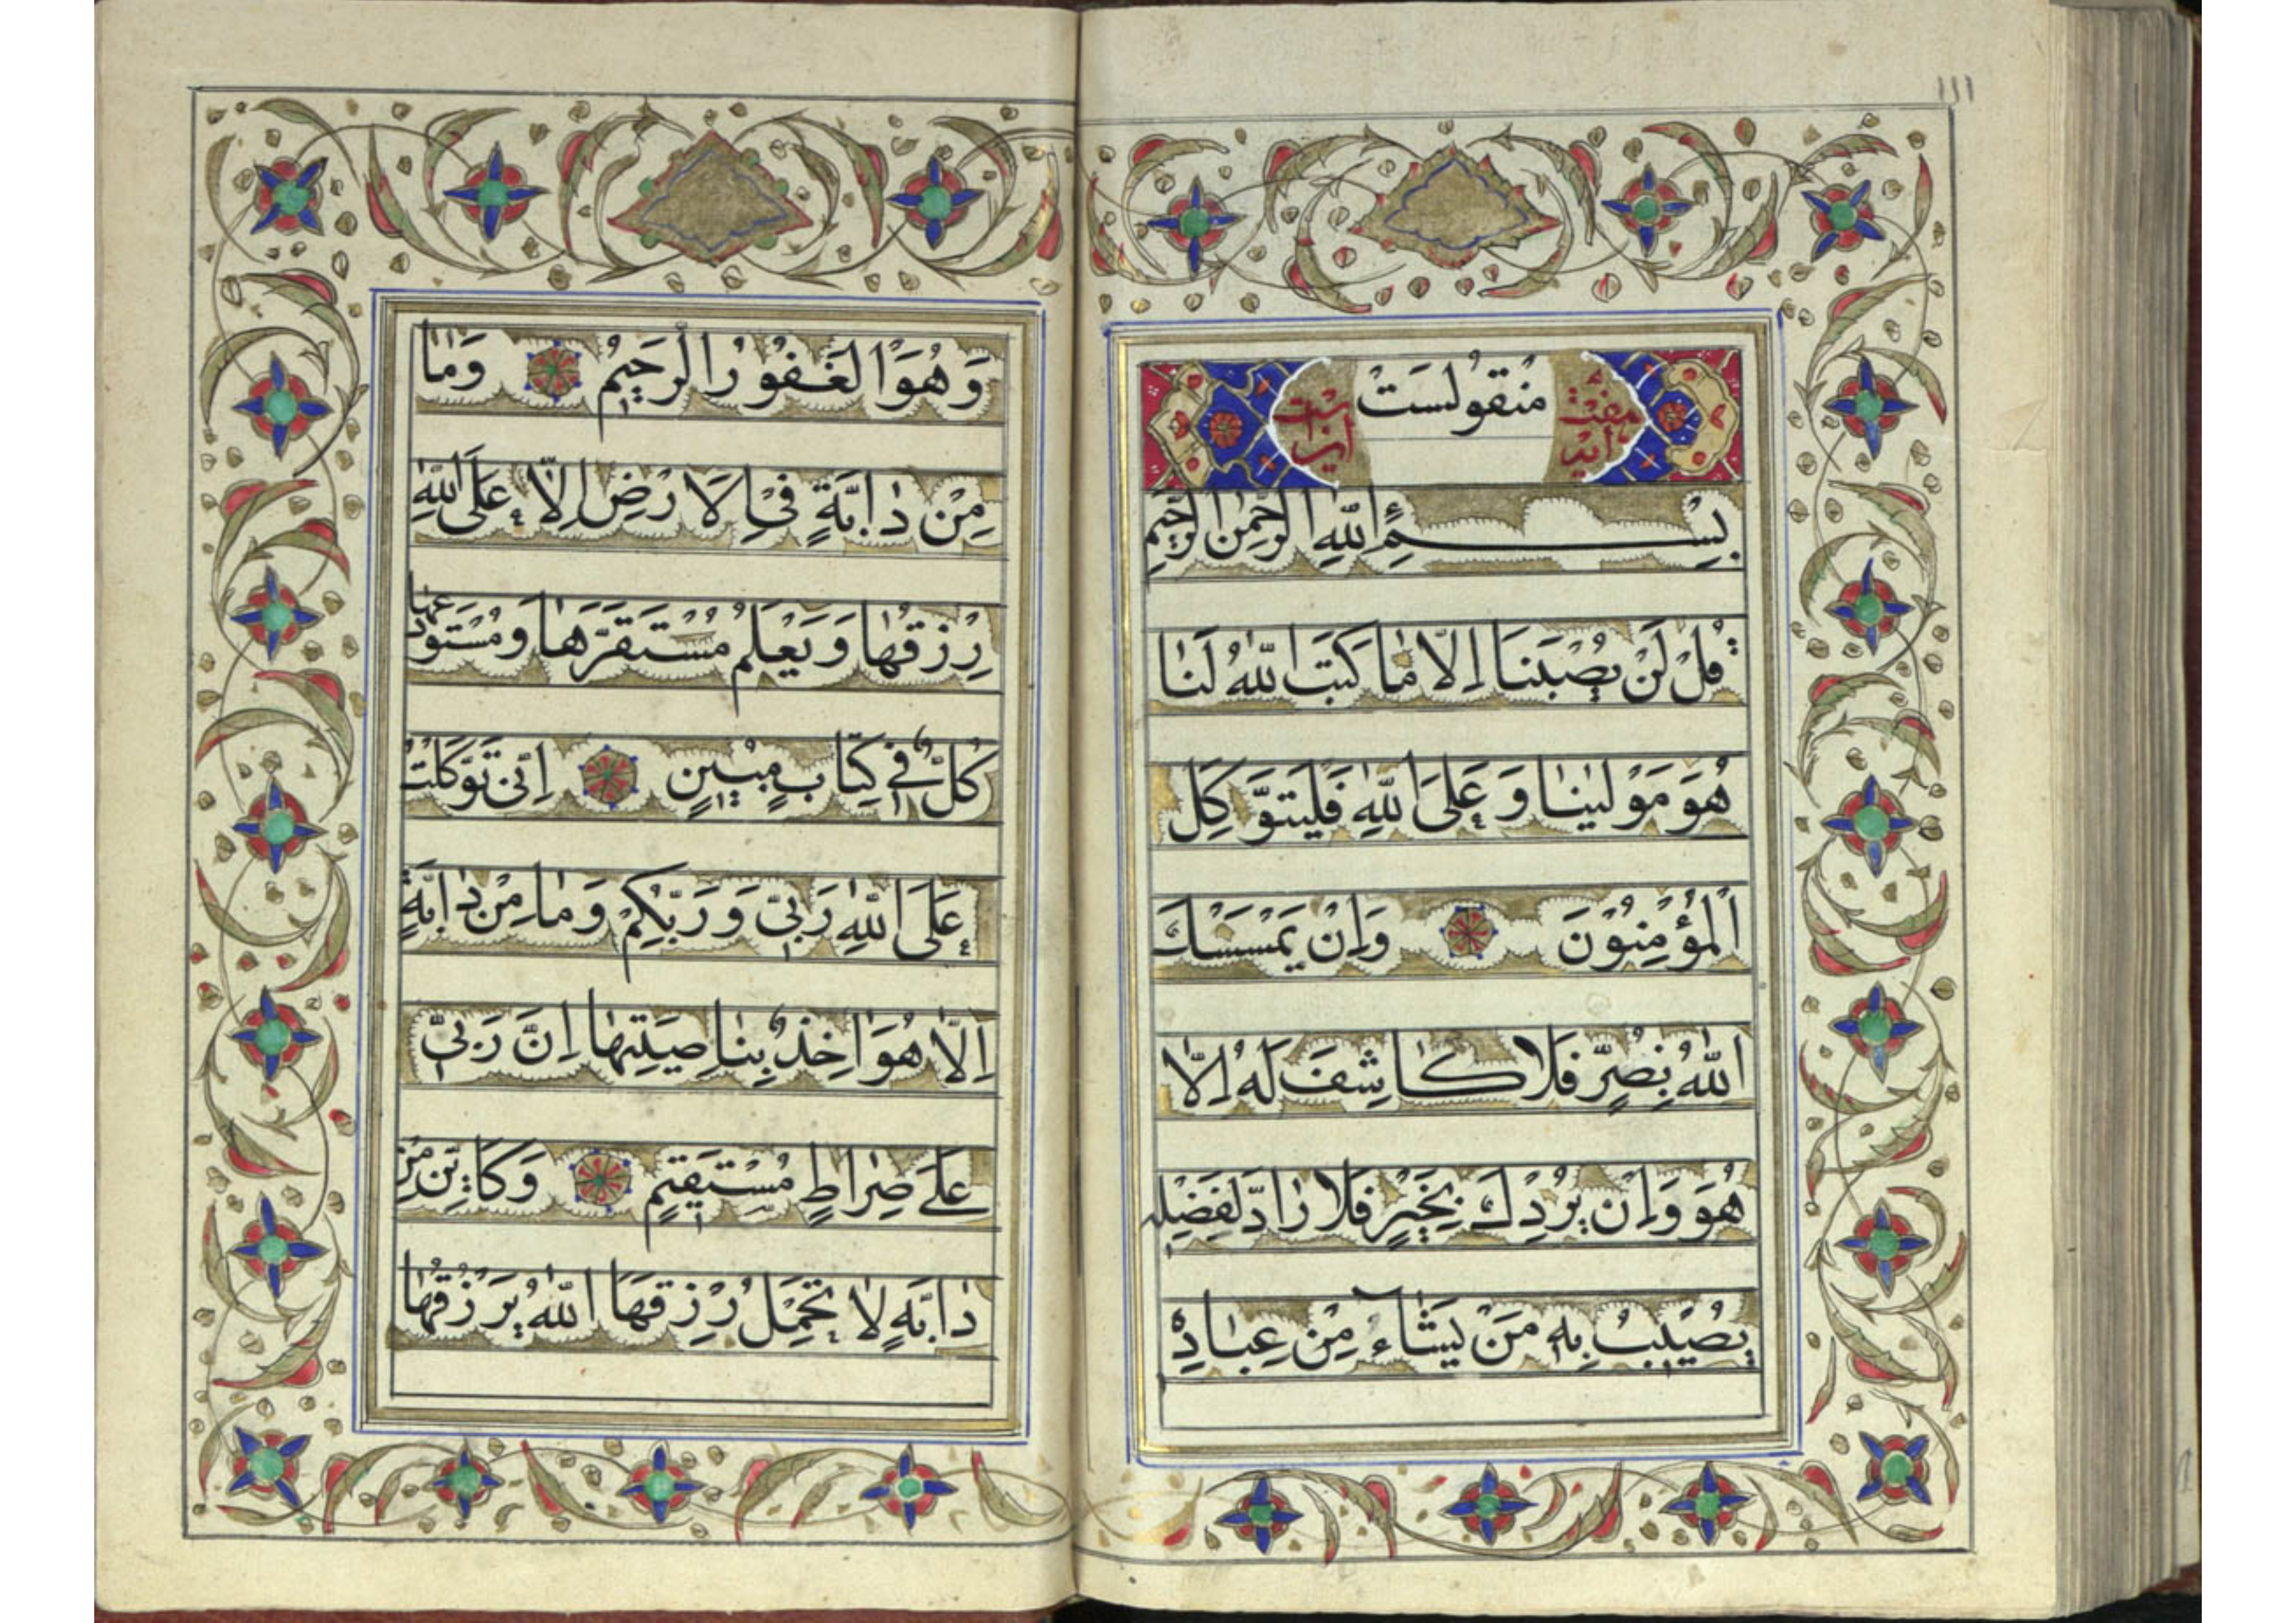 ١١١
هفت آیه منقولست
بِسْمِ اللّٰهِ الرَّحْمٰنِ الرَّحِيمِ
قُلْ لَنْ يُصِيبَنَا اِلَّا مَا كَتَبَ اللّٰهُ لَنَا
هُوَ مَوْلٰينَا وَعَلَى اللّٰهِ فَلْيَتَوَكَّلِ
الْمُؤْمِنُونَ وَاِنْ يَمْسَسْكَ
اللّٰهُ بِضُرٍّ فَلَا كَاشِفَ لَهُ اِلَّا
هُوَ وَاِنْ يُرِدْكَ بِخَيْرٍ فَلَا رَادَّ لِفَضْلِهِ
يُصِيبُ بِهِ مَنْ يَشَآءُ مِنْ عِبَادِهِ
وَهُوَ الْغَفُورُ الرَّحِيمُ وَمَا
مِنْ دَابَّةٍ فِي الْاَرْضِ اِلَّا عَلَى اللّٰهِ
رِزْقُهَا وَيَعْلَمُ مُسْتَقَرَّهَا وَمُسْتَوْدَعَهَا
كُلٌّ فِي كِتَابٍ مُبِينٍ اِنِّي تَوَكَّلْتُ
عَلَى اللّٰهِ رَبِّي وَرَبِّكُمْ وَمَا مِنْ دَابَّةٍ
اِلَّا هُوَ اٰخِذٌ بِنَاصِيَتِهَا اِنَّ رَبِّي
عَلٰى صِرَاطٍ مُسْتَقِيمٍ وَكَاَيِّنْ مِنْ
دَابَّةٍ لَا تَحْمِلُ رِزْقَهَا اللّٰهُ يَرْزُقُهَا